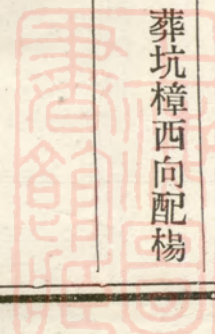 葬坑樟西向配楊